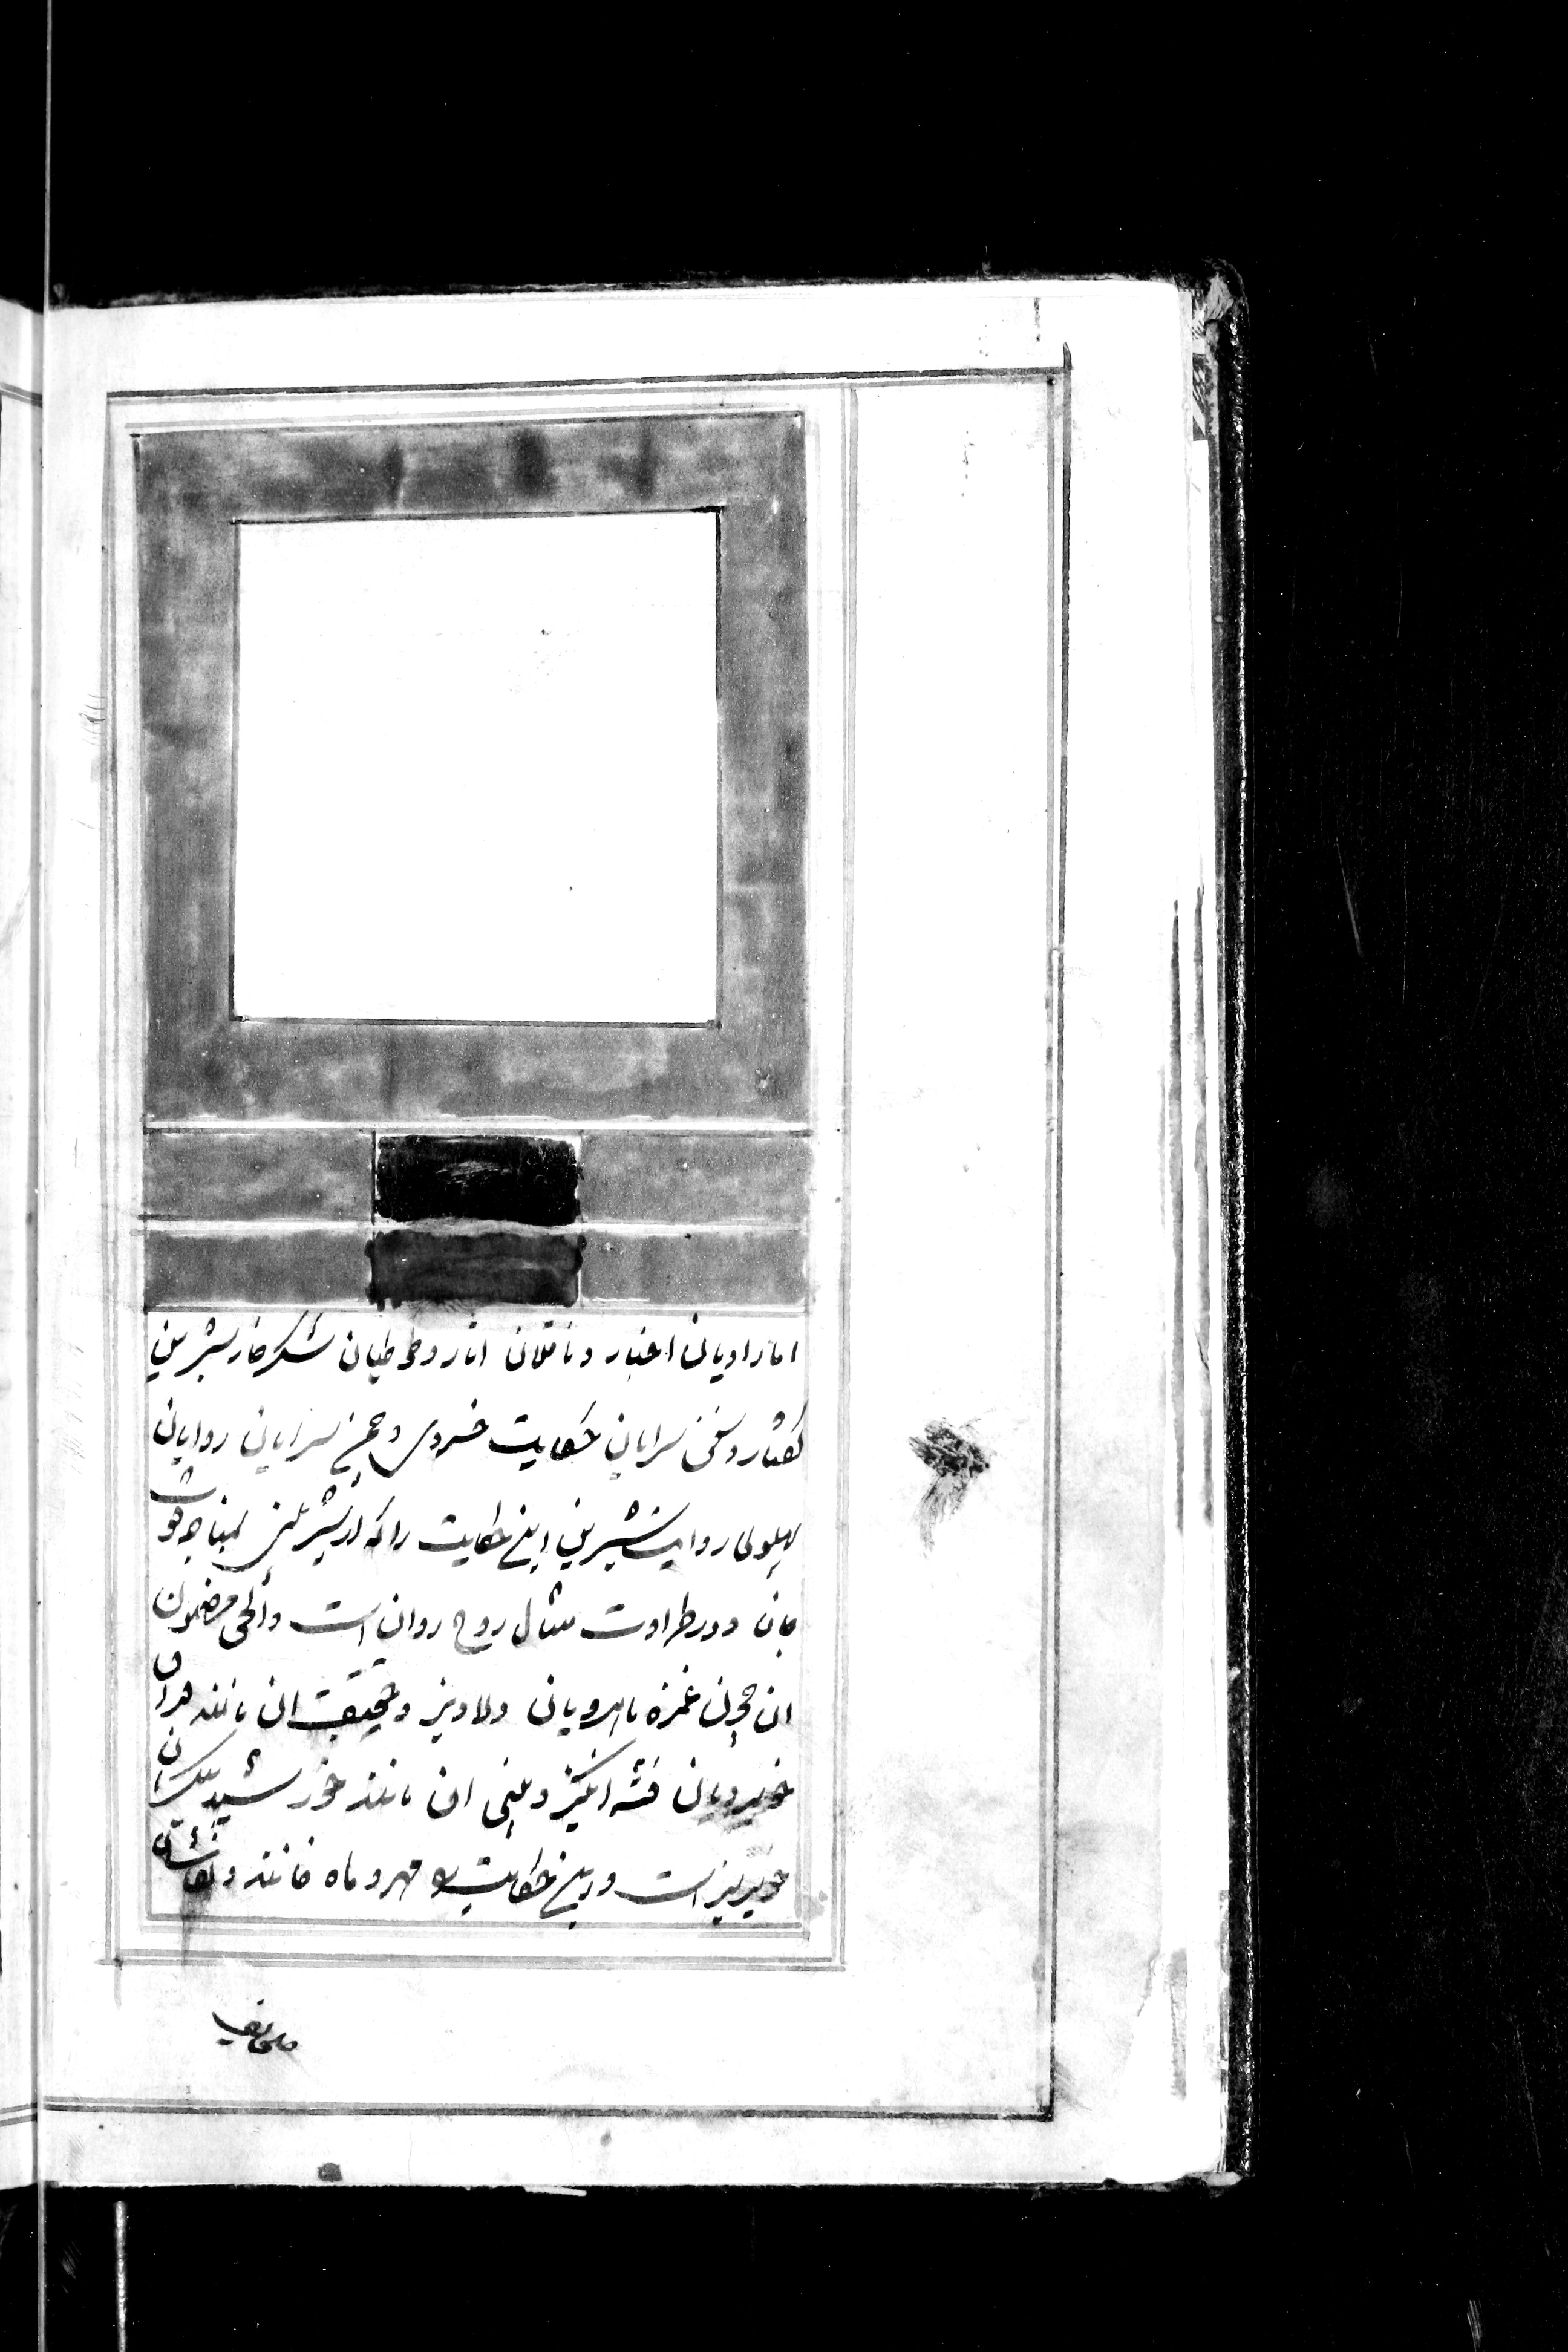 اما راویان اخبار و ناقلان اثار و طوطیان شکر خار شیرین
گفتار و سخن سرایان حکایت خسروی و چمن سرایان روایان
پهلوی روایت شیرین این حکایت را که از شیرینی بمثابه قوت
جان و در طراوت مثال روح روان است و الحق مضمون
ان چون غمزه ماهرویان دلاویز و حقیقت ان مانند
خوبرویان فتنه انگیز و معنی ان مانند خورشید
است و این حکایت مهر و ماه خانند و